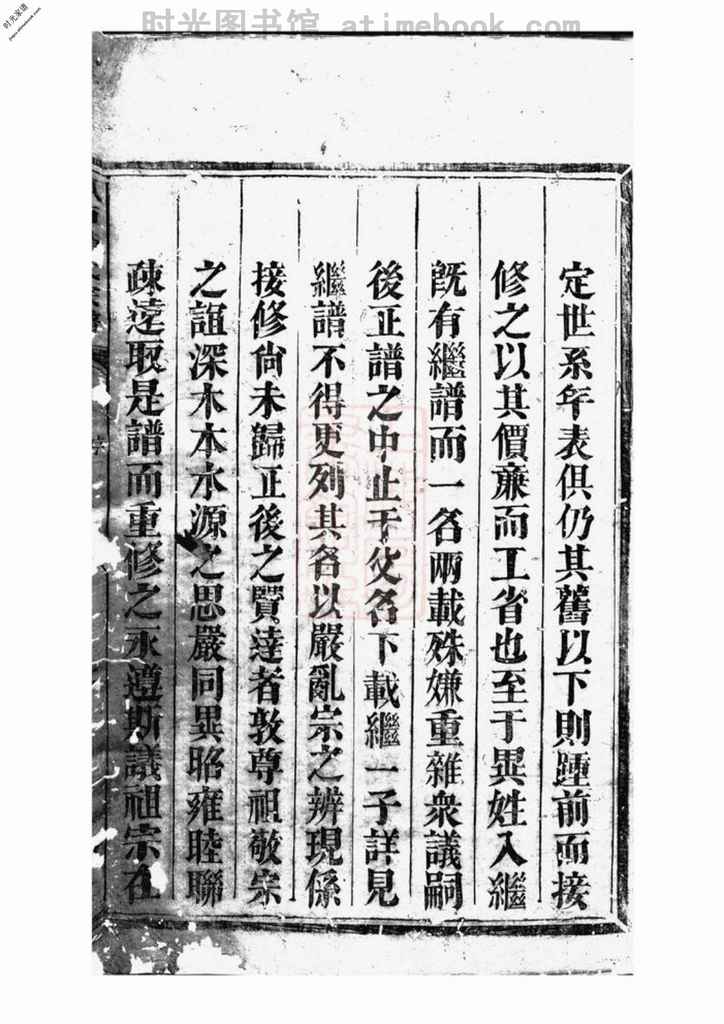 时光图书馆 atimebook.com
时光家谱
定世系年表俱仍其舊以下則踵前而接
修之以其價廉而工省也至于異姓入繼
旣有繼譜而一名兩載殊嫌重雜衆議嗣
後正譜之中止于父名下載繼一子詳見
繼譜不得更列其名以嚴亂宗之辨現係
接修尙未歸正後之賢達者敦尊祖敬宗
之誼深木本水源之思嚴同異昭雍睦聯
疎逺取是譜而重修之永遵斯議祖宗在